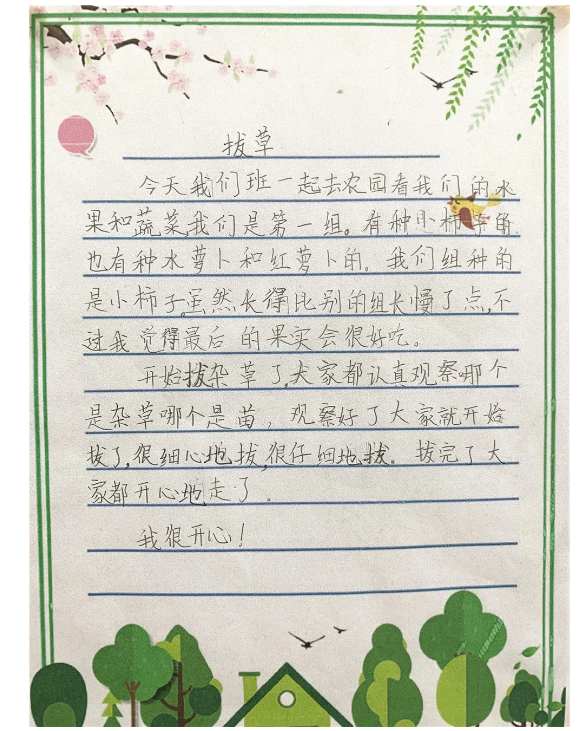 拔草
今天我们班一起去农园看我们的水
果和蔬菜我们是第一组。有种小柿子的
也有种水萝卜和红萝卜的。我们组种的
是小柿子,虽然长得比别的组长慢了点,不
过我觉得最后的果实会很好吃。
开始拔杂草了,大家都认真观察哪个
是杂草哪个是苗，观察好了大家就开始
拔了,很细心地拔,很仔细地拔。拔完了大
家都开心地走了。
我很开心！